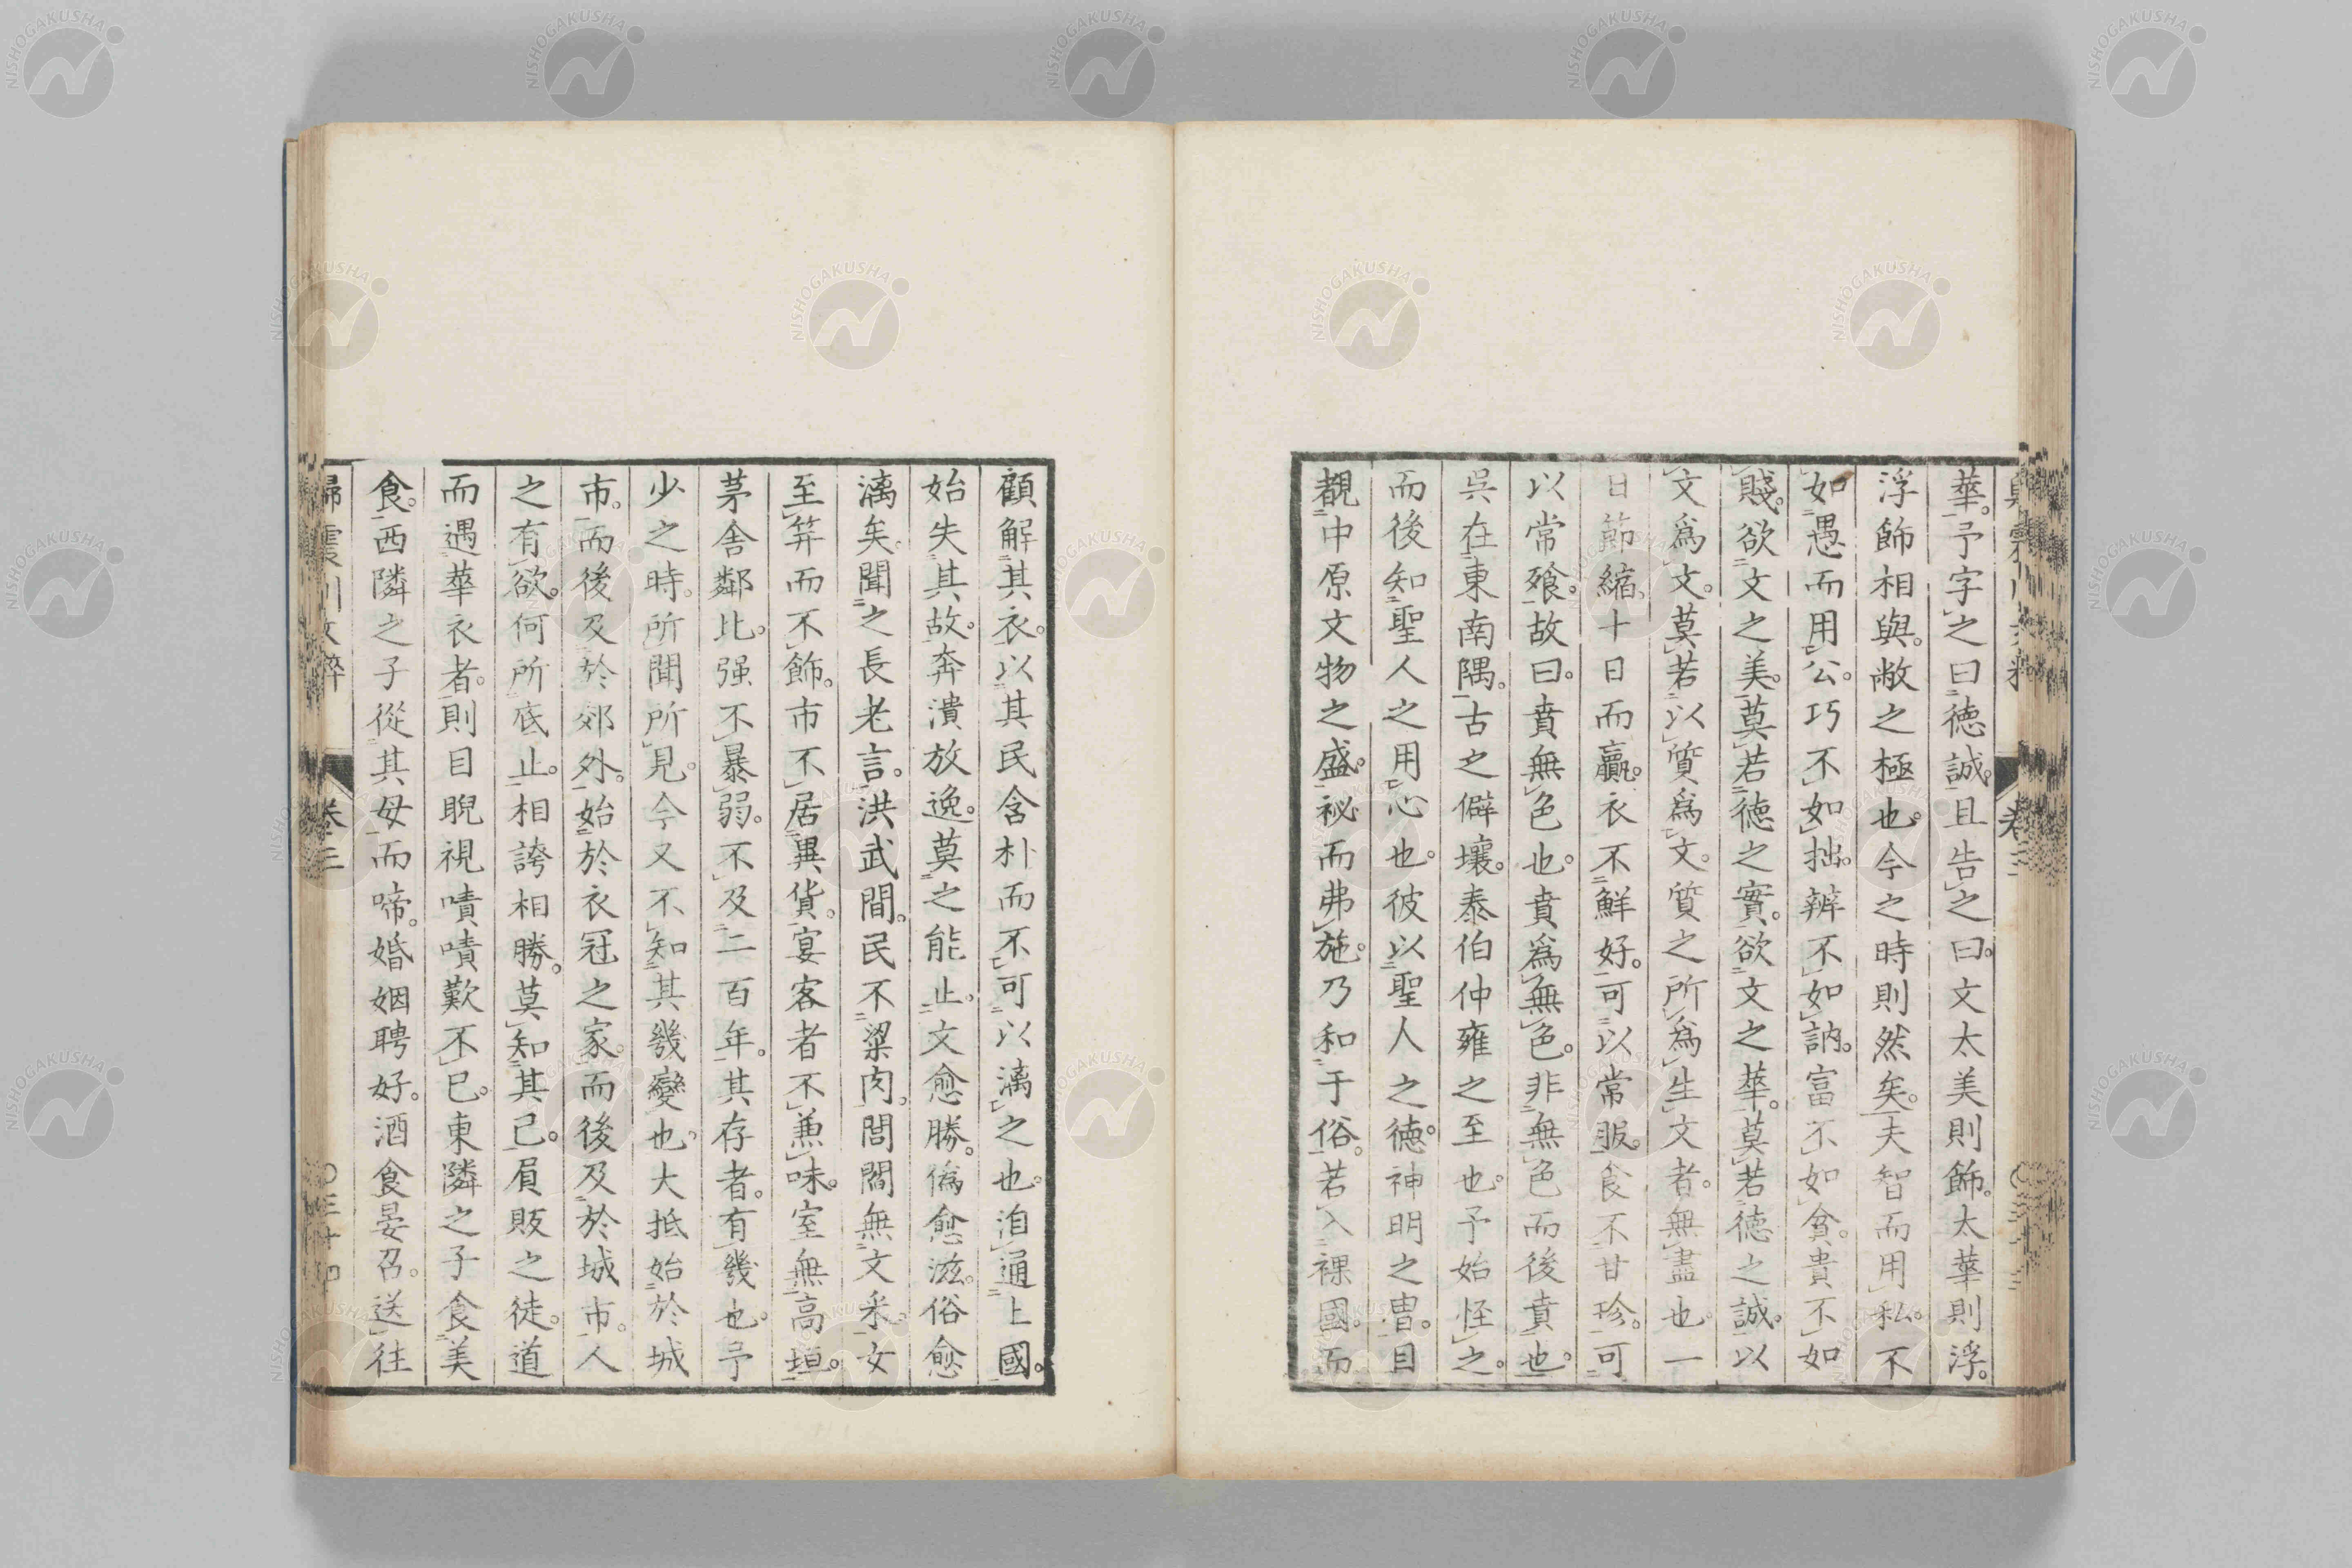 華。予字之曰德誠。且告之曰。文太美則飾。太華則浮。
浮飾相與。敝之極也。今之時則然矣。夫智而用私。不
如愚而用公。巧不如拙。辨不如訥。富不如貧。貴不如
賤。欲文之美。莫若德之實。欲文之華。莫若德之誠。以
文爲文。莫若以質爲文。質之所爲生文者。無盡也。一
日節縮。十日而贏。衣不鮮好。可以常服。食不甘珍。可
以常飱。故曰。賁無色也。賁爲無色。非無色而後賁也。
吳在東南隅。古之僻壤。泰伯仲雍之至也。予始怪之。
而後知聖人之用心也。彼以聖人之德。神明之冑。目
覩中原文物之盛。祕而弗施。乃和于俗。若入裸國。而
卷三
顧解其衣。以其民含朴而不可以漓之也。洎通上國。
始失其故。奔潰放逸。莫之能止。文愈勝。僞愈滋。俗愈
漓矣。聞之長老言。洪武間。民不粱肉。閭閻無文采。女
至笄而不飾。市不居異貨。宴客者不兼味。室無高垣。
茅舍鄰比。强不暴弱。不及二百年。其存者。有幾也。予
少之時。所聞所見。今又不知其幾變也。大抵始於城
市。而後及於郊外。始於衣冠之家。而後及於城市。人
之有欲。何所底止。相誇相勝。莫知其已。負販之徒。道
而遇華衣者。則目睨視嘖嘖歎不已。東隣之子食美
食。西隣之子從其母而啼。婚姻聘好。酒食晏召。送往
歸震川文粹
卷三
〇三十四
NISHOGAKUSHA